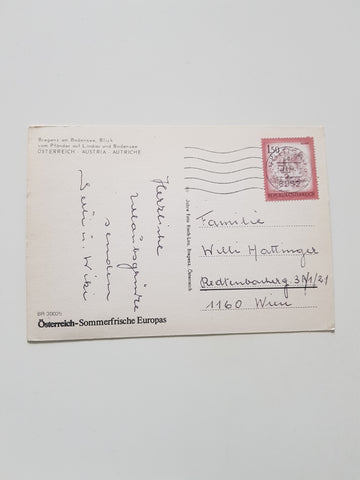 Bregenz am Bodensee, Blick
vom Pfänder auf Lindau und Bodensee
ÖSTERREICH - AUSTRIA - AUTRICHE
Herzliche
Urlaubsgrüße
senden
BR 20025
Österreich-Sommerfrische Europas
1.50
REPUBLIK ÖSTERREICH
Familie
Willi Hattinger
Redtenbacherg 31/1/21
1160 Wien